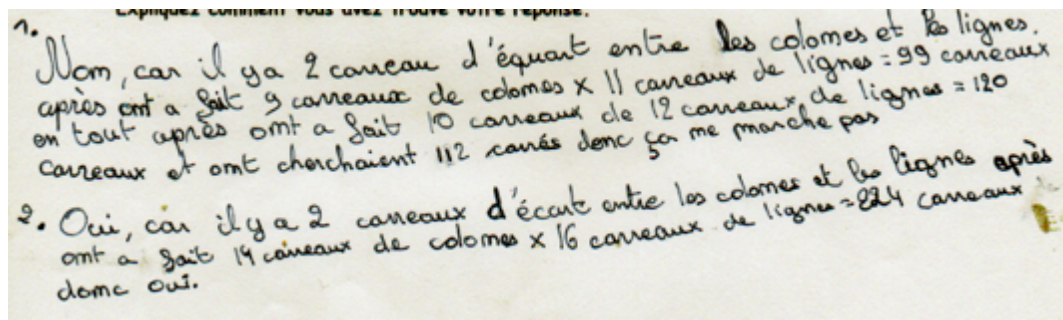 Expliquez comment vous avez trouvé votre réponse.
1.
Nom, car il y a 2 carreau d'équart entre les colomes et les lignes.
après ont a fait 9 carreaux de colomes x 11 carreaux de lignes = 99 carreaux
en tout après omt a fait 10 carreaux de 12 carreaux de lignes = 120
carreaux et omt cherchaient 112 carrés donc ça me marche pas
2. Oui, car il y a 2 carreaux d'écart entre les colomes et les lignes après
omt a fait 14 carreaux de colomes x 16 carreaux de lignes = 224 carreaux
domc oui.